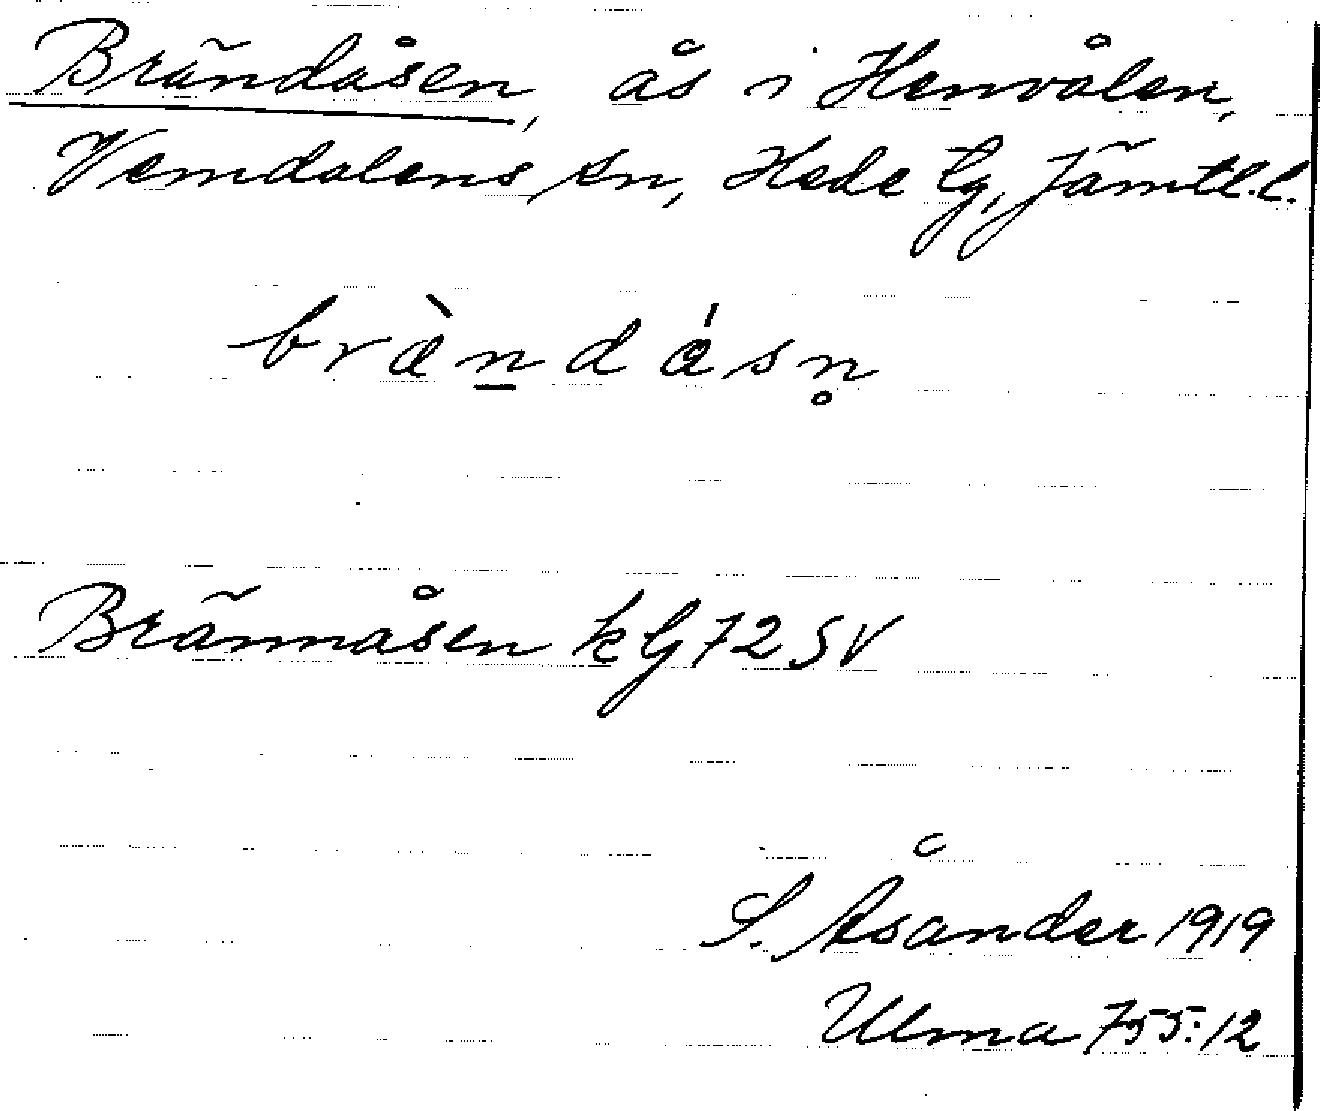 Brändåsen, ås i Henvålen,
Vemdalens sn, Hede tg, Jämtl.l.
brànd́åsn̥
Brännåsen kG 72 SV
S. Åsander 1919
Ulma 755:12